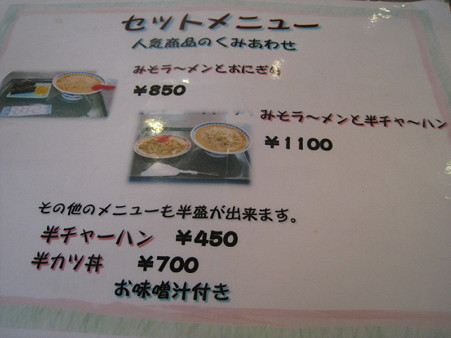 セットメニュー
人気商品のくみあわせ
みそラ～メンとおにぎり
￥850
みそラ～メンと半チャ～ハン
￥1100
その他のメニューも半盛が出来ます。
半チャーハン ￥450
半カツ丼 ￥700
お味噌汁付き